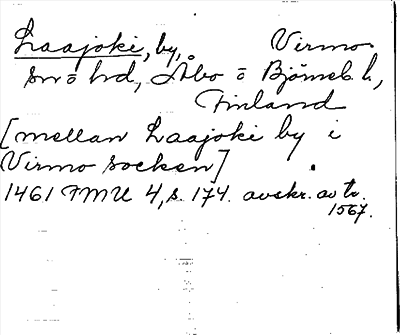 Laajoki, by, Virmo
sn o hd, Åbo o Björneb. l.,
Finland
[mellan Laajoki by i
Virmo socken]
1461 FMU 4, s. 174. avskr. av tr.
1567.